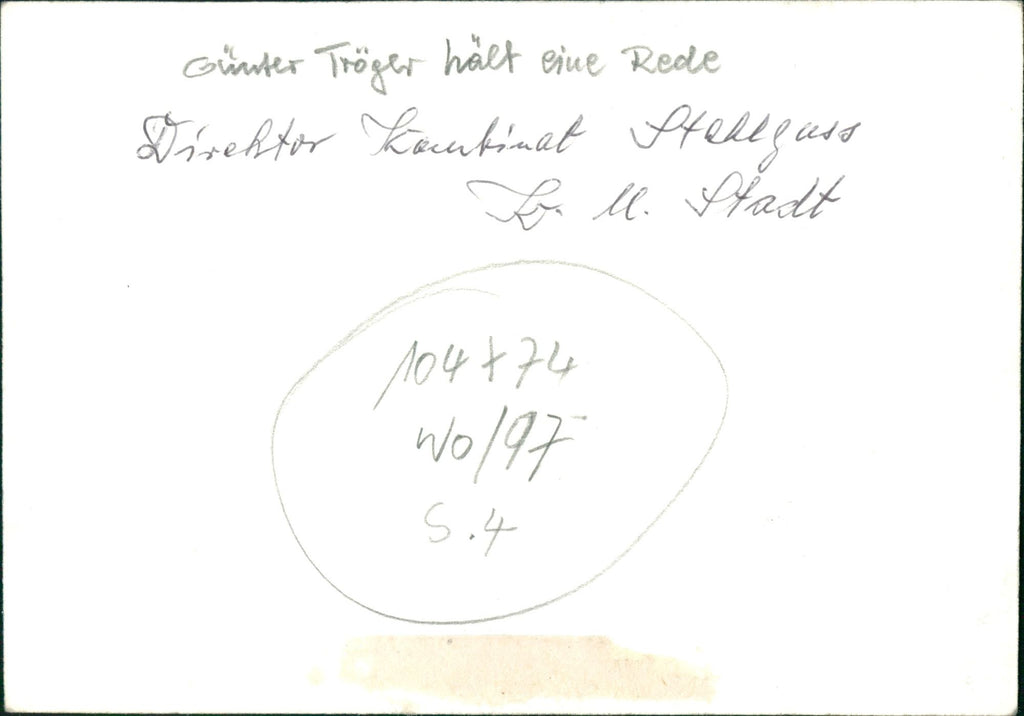 Günter Tröger hält eine Rede
Direktor Kombinat Stahlguss
K. M. Stadt
104 x 74
WO/97
S. 4